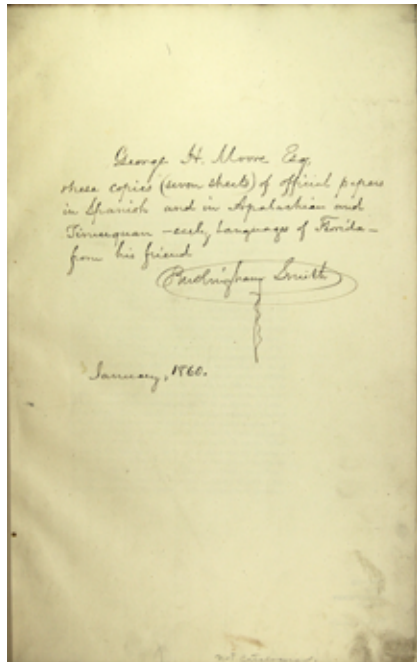 George H. Moore Esq,
these copies (seven sheets) of official papers
in Spanish and in Apalachian and
Timuquan – early languages of Florida –
from his friend
Buckingham Smith
January, 1860.